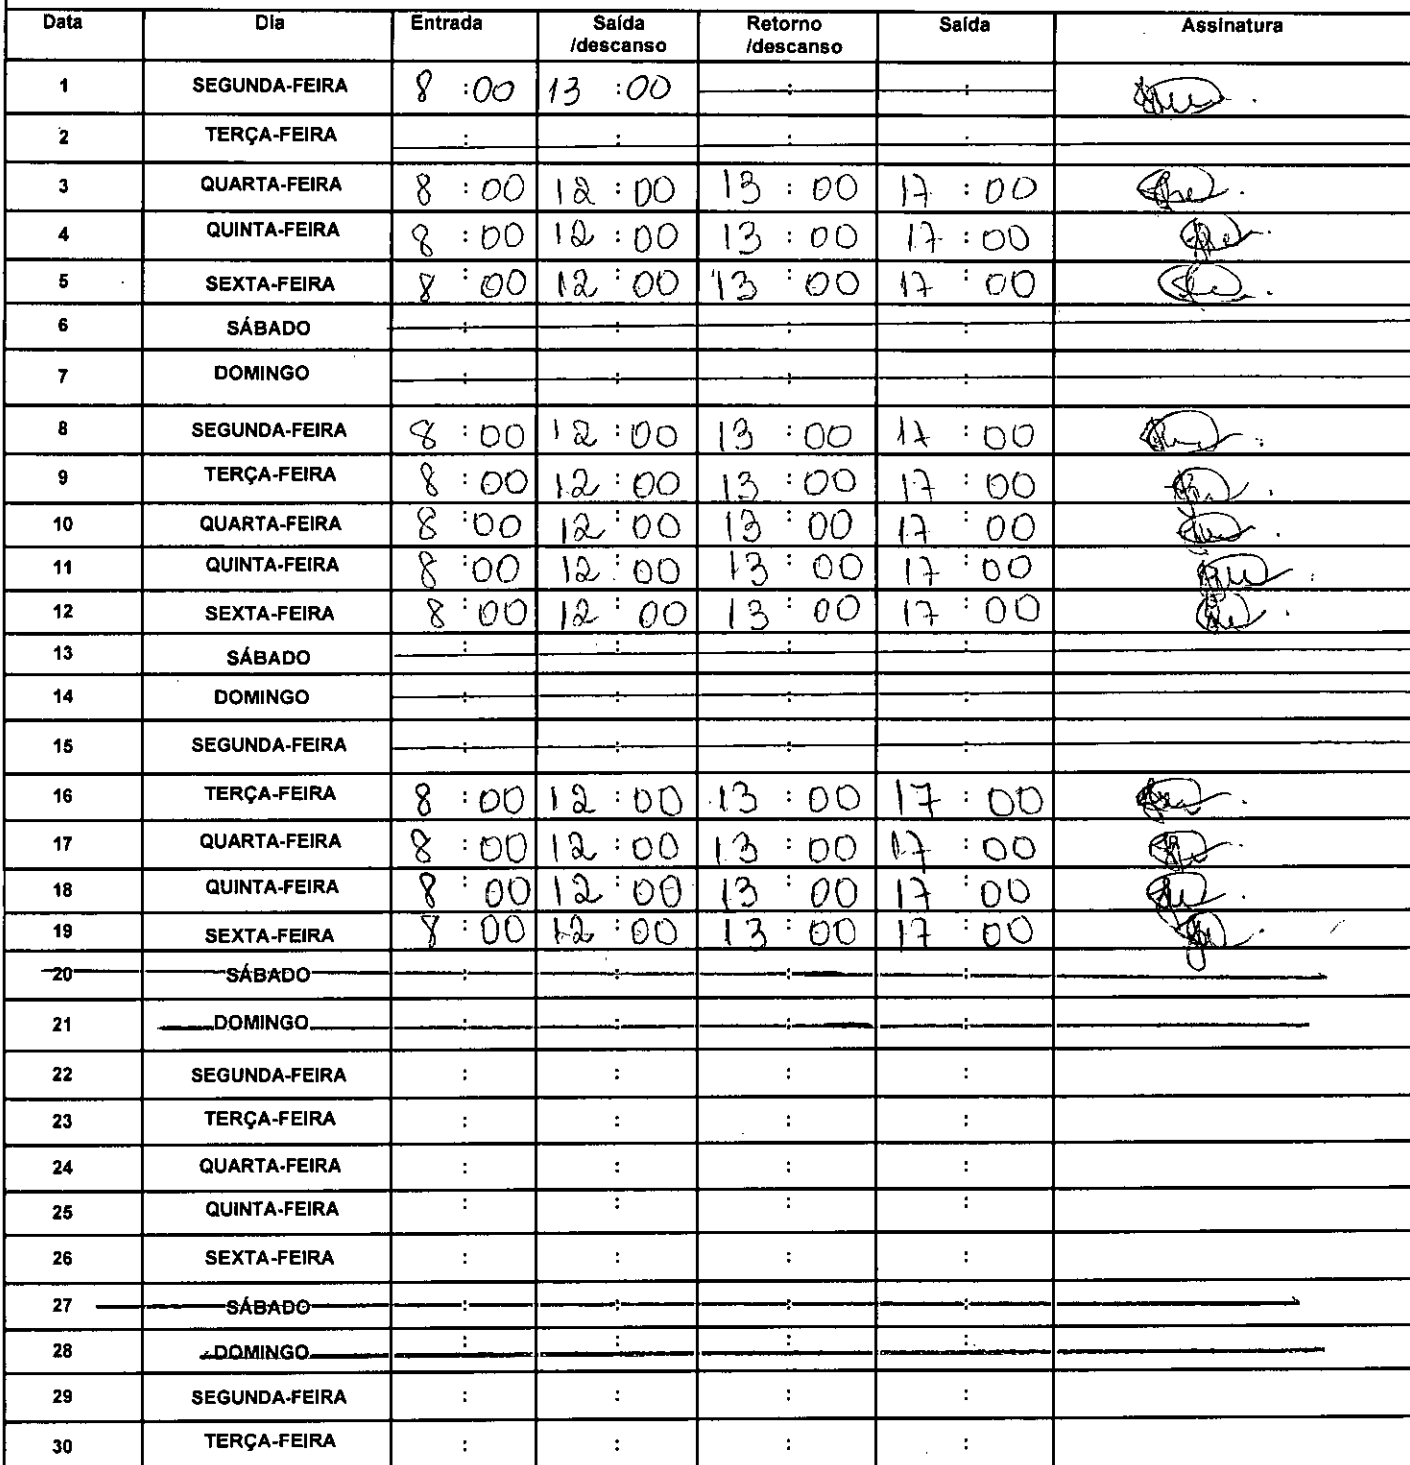 Data Dia Entrada Saída /descanso Retorno /descanso Saída Assinatura
1 SEGUNDA-FEIRA 8 :00 13 :00 : :
2 TERÇA-FEIRA : : : :
3 QUARTA-FEIRA 8 :00 12 :00 13 :00 17 :00
4 QUINTA-FEIRA 8 :00 12 :00 13 :00 17 :00
5 SEXTA-FEIRA 8 :00 12 :00 13 :00 17 :00
6 SÁBADO : : : :
7 DOMINGO : : : :
8 SEGUNDA-FEIRA 8 :00 12 :00 13 :00 17 :00
9 TERÇA-FEIRA 8 :00 12 :00 13 :00 17 :00
10 QUARTA-FEIRA 8 :00 12 :00 13 :00 17 :00
11 QUINTA-FEIRA 8 :00 12 :00 13 :00 17 :00
12 SEXTA-FEIRA 8 :00 12 :00 13 :00 17 :00
13 SÁBADO : : : :
14 DOMINGO : : : :
15 SEGUNDA-FEIRA : : : :
16 TERÇA-FEIRA 8 :00 12 :00 13 :00 17 :00
17 QUARTA-FEIRA 8 :00 12 :00 13 :00 17 :00
18 QUINTA-FEIRA 8 :00 12 :00 13 :00 17 :00
19 SEXTA-FEIRA 8 :00 12 :00 13 :00 17 :00
20 SÁBADO : : : :
21 DOMINGO : : : :
22 SEGUNDA-FEIRA : : : :
23 TERÇA-FEIRA : : : :
24 QUARTA-FEIRA : : : :
25 QUINTA-FEIRA : : : :
26 SEXTA-FEIRA : : : :
27 SÁBADO : : : :
28 DOMINGO : : : :
29 SEGUNDA-FEIRA : : : :
30 TERÇA-FEIRA : : : :